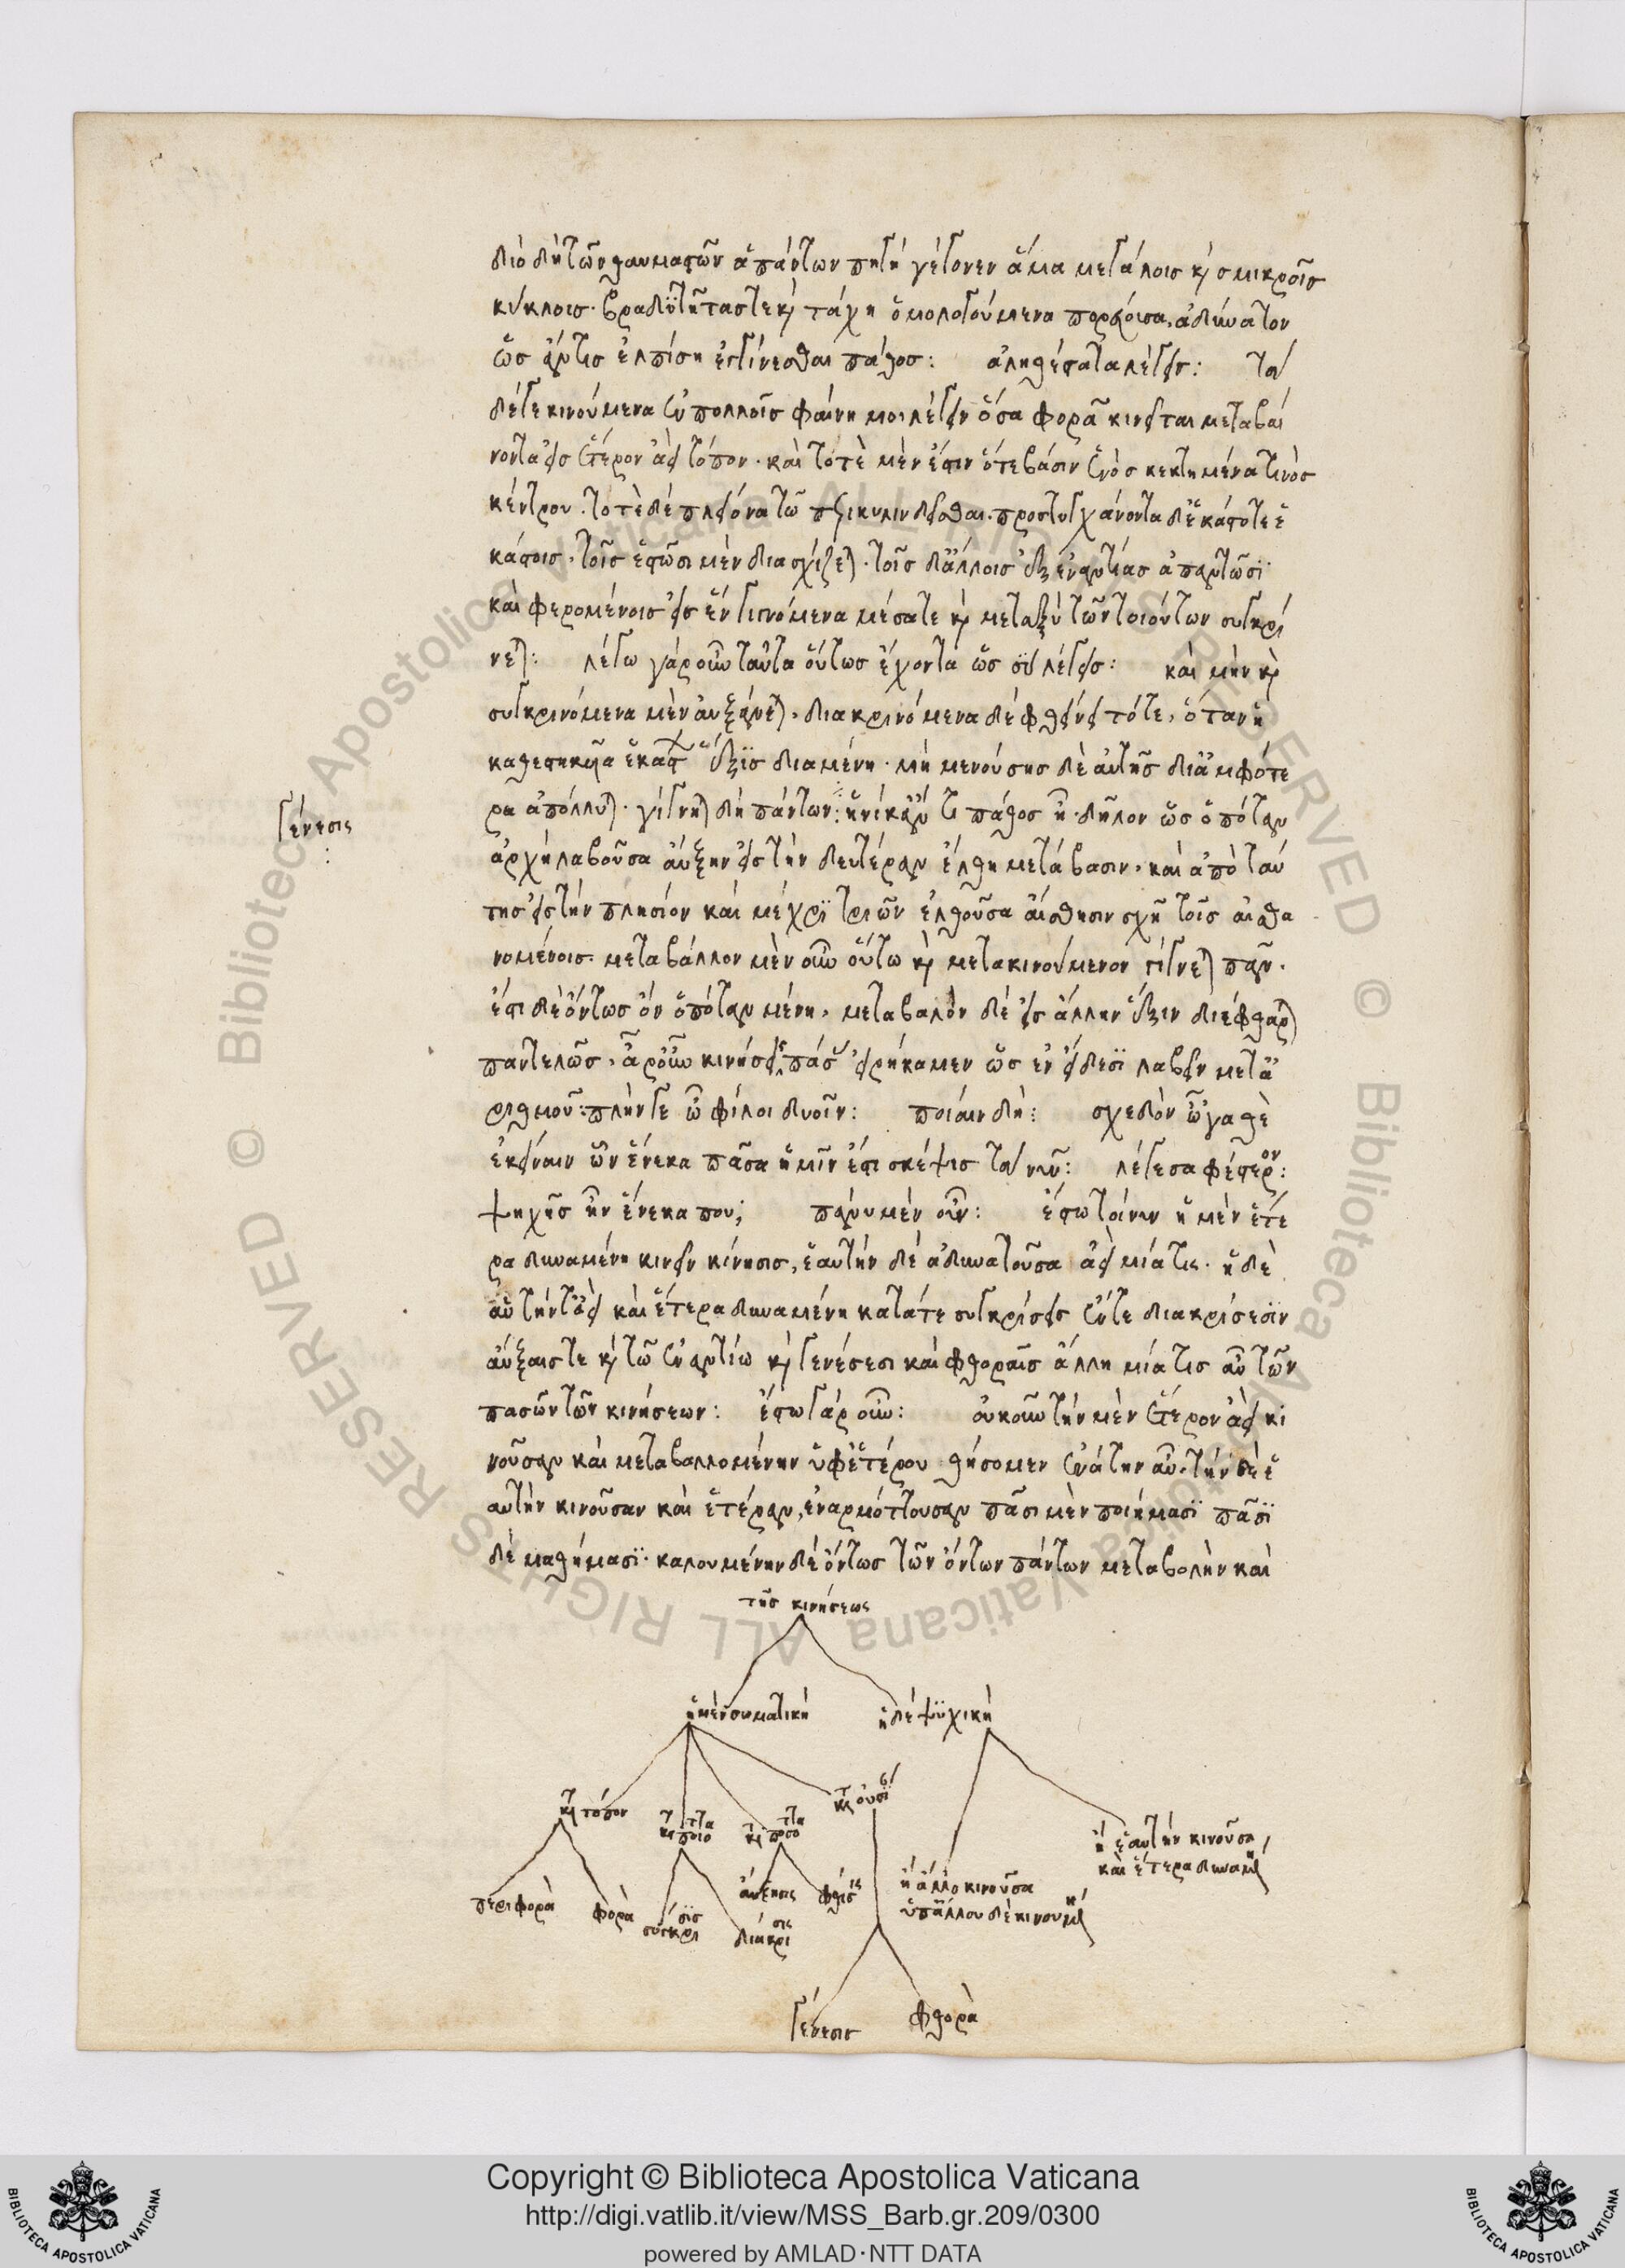 διὸ δὴ τῶν θαυμαστῶν ἁπάντων πηγὴ γέγονεν ἅμα μεγάλοις κ(αὶ) σμικροῖς
κύκλοις· βραδϋτῆτάς τε κ(αὶ) τάχη ὁμολογούμενα πορεύουσα, ἀδύνατον
ὡς ἄν τις ἐλπίση ἐγγίνεσθαι πάθος: ἀληθέστατα λέγεις: τά
δέ γε κινούμενα ἐν πολλοῖς φαίνη μοι λέγειν ὅσα φορᾶ κινεῖται μεταβαί
νοντα εἰς ἕτερον ἀεὶ τόπον· καὶ τοτὲ μὲν ἔστιν ὅτε βάσιν ἑνὸς κεκτημένα τινὸς
κέντρου· τοτὲ δὲ πλείονα τῶ περικυλινδεῖσθαι· προστυγχάνοντα δ' ἑκάστοτε ἑ
κάστοις· τοῖς ἑστῶσι μὲν διασχίζετ(αι)· τοῖς δ' ἄλλοις ἐξ ἐναντίας ἀπαντῶσϊ
καὶ φερομένοις εἰς ἓν γιγνόμενα μέσα τε κ(αὶ) μεταξὺ τῶν τοιούτων συγκρί
νετ(αι): λέγω γὰρ οὖν ταῦτα οὕτως ἔχοντα ὡς σὺ λέγεις: καὶ μὴν κ(αὶ)
συγκρινόμενα μὲν αὐξάνετ(αι), διακρινόμενα δὲ φθίνει τότε, ὅταν ἡ
καθεστηκυῖα ἑκάστ(ων) ἕξϊς διαμένη· μὴ μενούσης δὲ αὐτῆς δι' ἀμφότε
ρα ἀπόλλυτ(αι)· γίγνητ(αι) δὴ πάντων: ἡνίκ' ἄν τι πάθος ἦ· δῆλον ὡς ὁπόταν
Γένεσις
:
ἀρχὴ λαβοῦσα αὔξην εἰς τὴν δευτέραν ἔλθη μετάβασιν· καὶ ἀπὸ ταύ
της εἰς τὴν πλησίον καὶ μέχρϊ τριῶν ἐλθοῦσα αἴσθησιν σχῆ τοῖς αἰσθα
νομένοις· μεταβάλλον μὲν οὖν οὕτω κ(αὶ) μετακινούμενον γίγνετ(αι) πᾶν·
ἔστι δὲ ὄντως ὂν ὁπόταν μένη, μεταβαλὸν δὲ εἰς ἄλλην ἕξιν διέφθαρτ(αι)
παντελῶς, ἆρ' οὖν κινήσεις πάσ(ας) εἰρήκαμεν ὡς ἐν εἴδεσϊ λαβεῖν μετ' ἀ
ριθμοῦ: πλήν γε ὦ φίλοι δυοῖν: ποίαιν δή: σχεδὸν ὦ 'γαθὲ
ἐκείναιν ὧν ἕνεκα πᾶσα ἡμῖν ἐστι σκέψις τὰ νῦν: λέγε σαφέστερον:
ψυχῆς ἦν ἕνεκά που; πάνυ μὲν οὖν: ἔστω τοίνυν ἡ μὲν ἕτε
ρα δυναμένη κινεῖν κίνησις, ἑαυτὴν δὲ ἀδυνατοῦσα ἀεὶ μία τις· ἡ δὲ
αὑτήν τ' ἀεὶ καὶ ἕτερα δυναμένη κατά τε συγκρίσεις ἔν τε διακρίσεσϊν
αὔξαις τε κ(αὶ) τῶ ἐναντίω κ(αὶ) γενέσεσι καὶ φθοραῖς ἄλλη μία τις αὖ τῶν
πασῶν τῶν κινήσεων: ἔστω γὰρ οὖν: οὐκοῦν τὴν μὲν ἕτερον ἀεὶ κι
νοῦσαν καὶ μεταβαλλομένην ὑφ' ἑτέρου θήσομεν ἐνάτην αὖ· τὴν δὲ ἑ
αυτὴν κινοῦσαν καὶ ἑτέραν, ἐναρμόττουσαν πᾶσι μὲν ποιήμασϊ πᾶσϊ
δὲ μαθήμασϊ· καλουμένην δὲ ὄντως τῶν ὄντων πάντων μεταβολὴν καὶ
τῆς κινήσεως
ἡ μὲν σωματικὴ ἡ δὲ ψϋχικὴ
κ(α)τ(ὰ) τόπον κ(α)τ(ὰ) ποιό τ(η)τα κ(α)τ(ὰ) ποσό τ(η)τα κ(α)τ(ὰ) οὐσί
ἡ ἑαυτὴν κινοῦσα
καὶ ἕτερα δυναμ(έν)η
περιφορὰ φορὰ σύγκρισϊς διάκρισις αὔξησις φθίσις
ἡ ἄλλο κινοῦσα
ὑπ' ἄλλου δὲ κινουμ(έν)η
Γένεσις φθορὰ
Copyright © Biblioteca Apostolica Vaticana
http://digi.vatlib.it/view/MSS_Barb.gr.209/0300
powered by AMLAD·NTT DATA
BIBLIOTECA APOSTOLICA VATICANA
BIBLIOTECA APOSTOLICA VATICANA
© Biblioteca Apostolica Vaticana ALL RIGHTS RESERVED
© Biblioteca Apostolica Vaticana ALL RIGHTS RESERVED